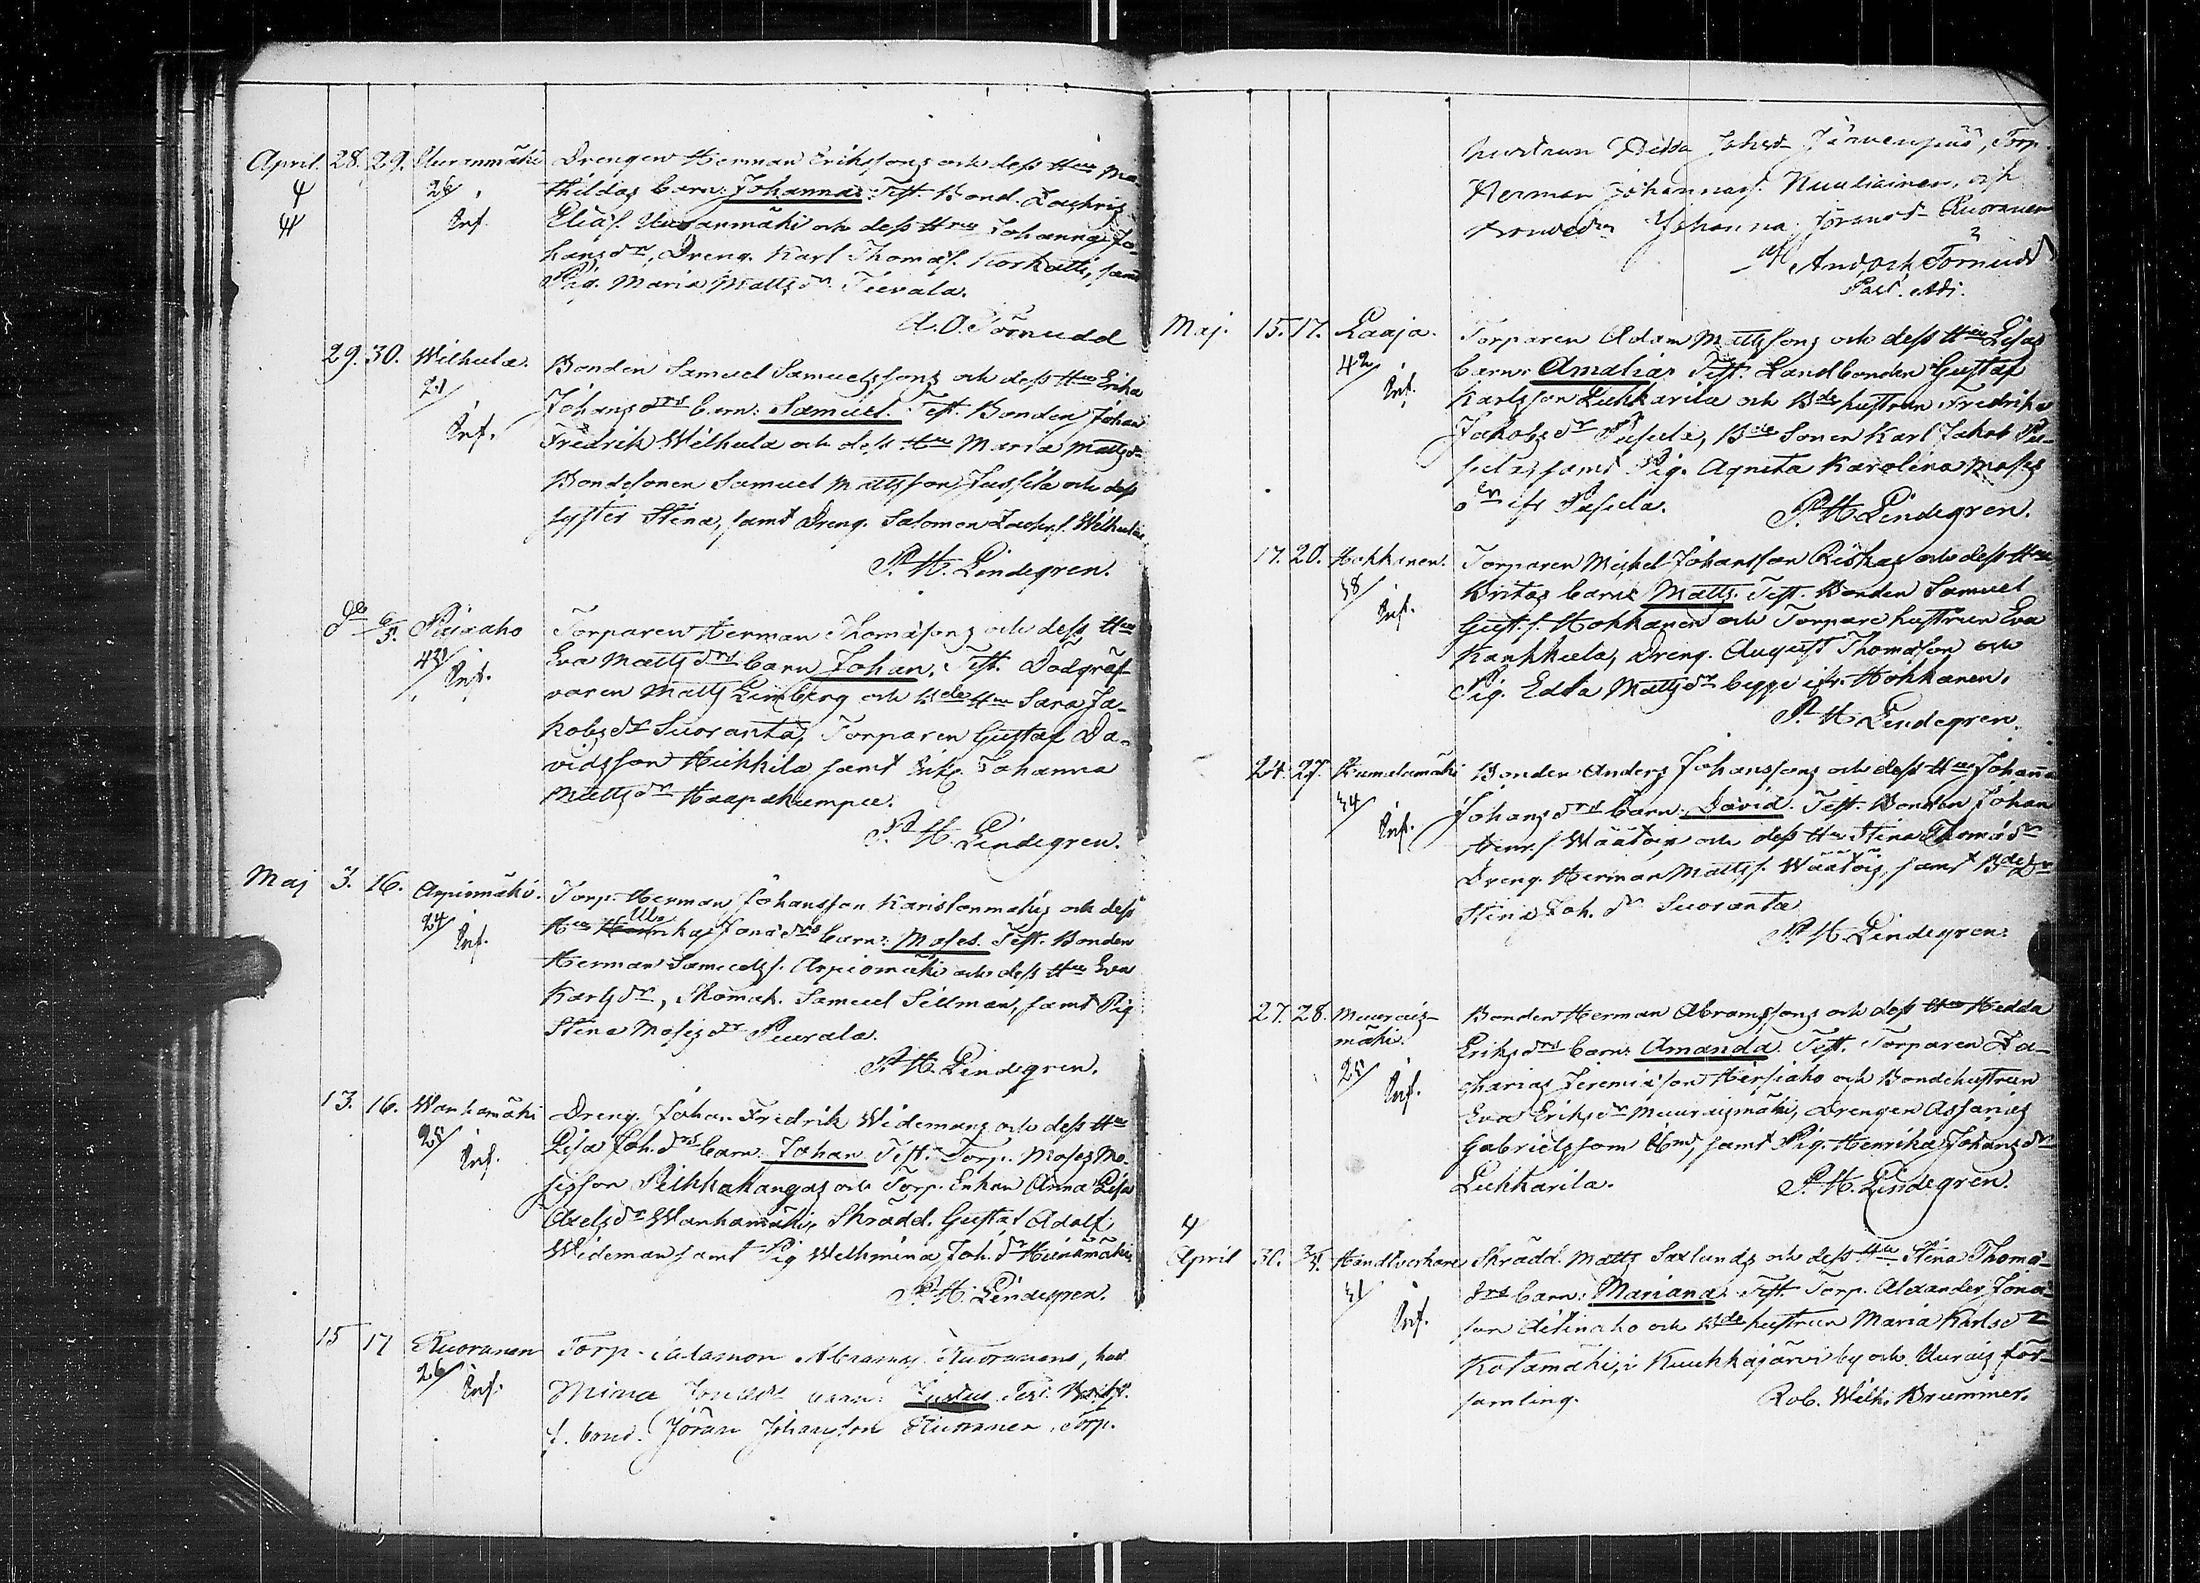 April. 28. 29. Uuranmäki Drengen Herman Erikssons och dess Hu Ma-
4 26/ thildas barn: Johannas. Test. Bond. Zachris
4 Inf. Eliäs. Uuranmäki och dess Hru Johanna Jo-
hans dr, Dreng. Karl Thomäs. Korkatti, samt
Pig. Maria Matts dr Tievala.
A. O. Törnudd
29. 30. Wilhula. Bonden Samuel Samuelssons och dess Hru Erika
21/ Johans drs barn: Samuel. Test. Bonden Johan
Inf. Fredrik Wilhula och dess Hu Maria Matts dr
Bondesonen Samuel Mattsson Jussila och dess
syster Stina, samt Dreng. Salomon Zachr. s. Wilhula.
P. H. Lindegren.
Piiraho Torparen Herman Thomäsons och dess Hu
43/ Inf. Eva Matts drs barn Johan. Test. Dödgräf-
varen Matts Limberg och Bde Hu Sara Ja-
kobs dr Suoranta, Torparen Gustaf Da-
vidsson Heikkilä samt Johanna
Matts dr Haapakumpu.
P. H. Lindegren.
Maj 3. 16. Arpiomäki. Torp. Herman Johansson och dess
24/ Hu Ulrika Jona drs barn: Moses. Test. Bonden
Inf. Herman Samuels s. Arpiomäki och dess Hu Eva
Karls dr, Skomak. Samuel Sillman, samt Pig
Stina Moses dr Peurala.
P. H. Lindegren.
13. 16. Wanhamäki Dreng. Johan Fredrik Widemans och dess Hu
25/ Lisa Joh. drs barn: Johan Test. Torp. Moses Mo-
Inf. sisson Pilkkakangas och Torp. Enkan Anna Lisa
Axels dr Wanhamäki, Skrädd. Gustaf Adolf
Wideman samt Pig Welhmina Joh. dr Heinämäki
P. H. Lindegren.
15 17 Ruoranen Torp. Salamon Abramss. Ruoranens, hust
26/ Inf. Mina barn: Justus Test.
f. bond. Jöran Johansson Ruoranen, Torp.
hustrun Hedda Johsdr Järvenpää, Torp.
Herman Johannass. Nuuliainen, och
Johanna Jörans dr Ruoranen
And. Och. Törnudd
Past. Adj.
Maj. 15. 17. Laaja. Torparen Adam Mattssons och dess Hu Lisas
42/ barn: Amalia. Test. Landbonden Gustaf
Inf. Karlsson Liukkarila och Bde hustrun Fredrika
Jakobs dr Pusula, Bde Sonen Karl Jakob Pu-
sula, samt Pig. Agneta Karolina Moses
dr ifr Pusula. P. H. Lindegren.
17. 20. Hokkanen. Torparen Michel Johansson Riskas och dess Hu
38/ Britas barn: Matts. Test. Bonden Samuel
Inf. Gust. s. Hokkanen och Torpare hustrun Eva
Kankkula, Dreng. August Thomäson och
Pig. Edla Matts dr begge ifr. Hokkanen.
P. H. Lindegren.
24. 27. Kumulamäki Bonden Anders Johanssons och dess Hu Johanna
34/ Johans drs barn: David. Test. Bonden Johan
Inf. Henr. s. Wäätäis och dess Hu Stina Thomä dr
Dreng. Herman Matts s. Wäätäis, samt Bde Dr
Stina Joh. dr Suoranta
P. H. Lindegren.
27. 28. Muurais- Bonden Herman Abramssons och dess Hu Hedda
mäki. Eriks drs barn: Amanda. Test. Torparen Za-
25/ charias Jeremiäson Hirsiaho och Bondehustrun
Inf. Eva Eriks dr Muuraismäki, Drengen Assarias
Gabrielsson ibm, samt Pig. Henrika Johans dr
Liukkarila. P. H. Lindegren.
4
April 30. 3/5. Handtverkare Skrädd. Matts Saxlunds och dess Hu Stina Thomä-
31/ drs barn: Mariana. Test Torp. Alexander Jonä-
Inf. son Aitinaho och Bde hustrun Maria Karls dr
Kotamäki, i Kuukkajärvi by och Urais för-
samling. Rob. Wilh. Brummer.